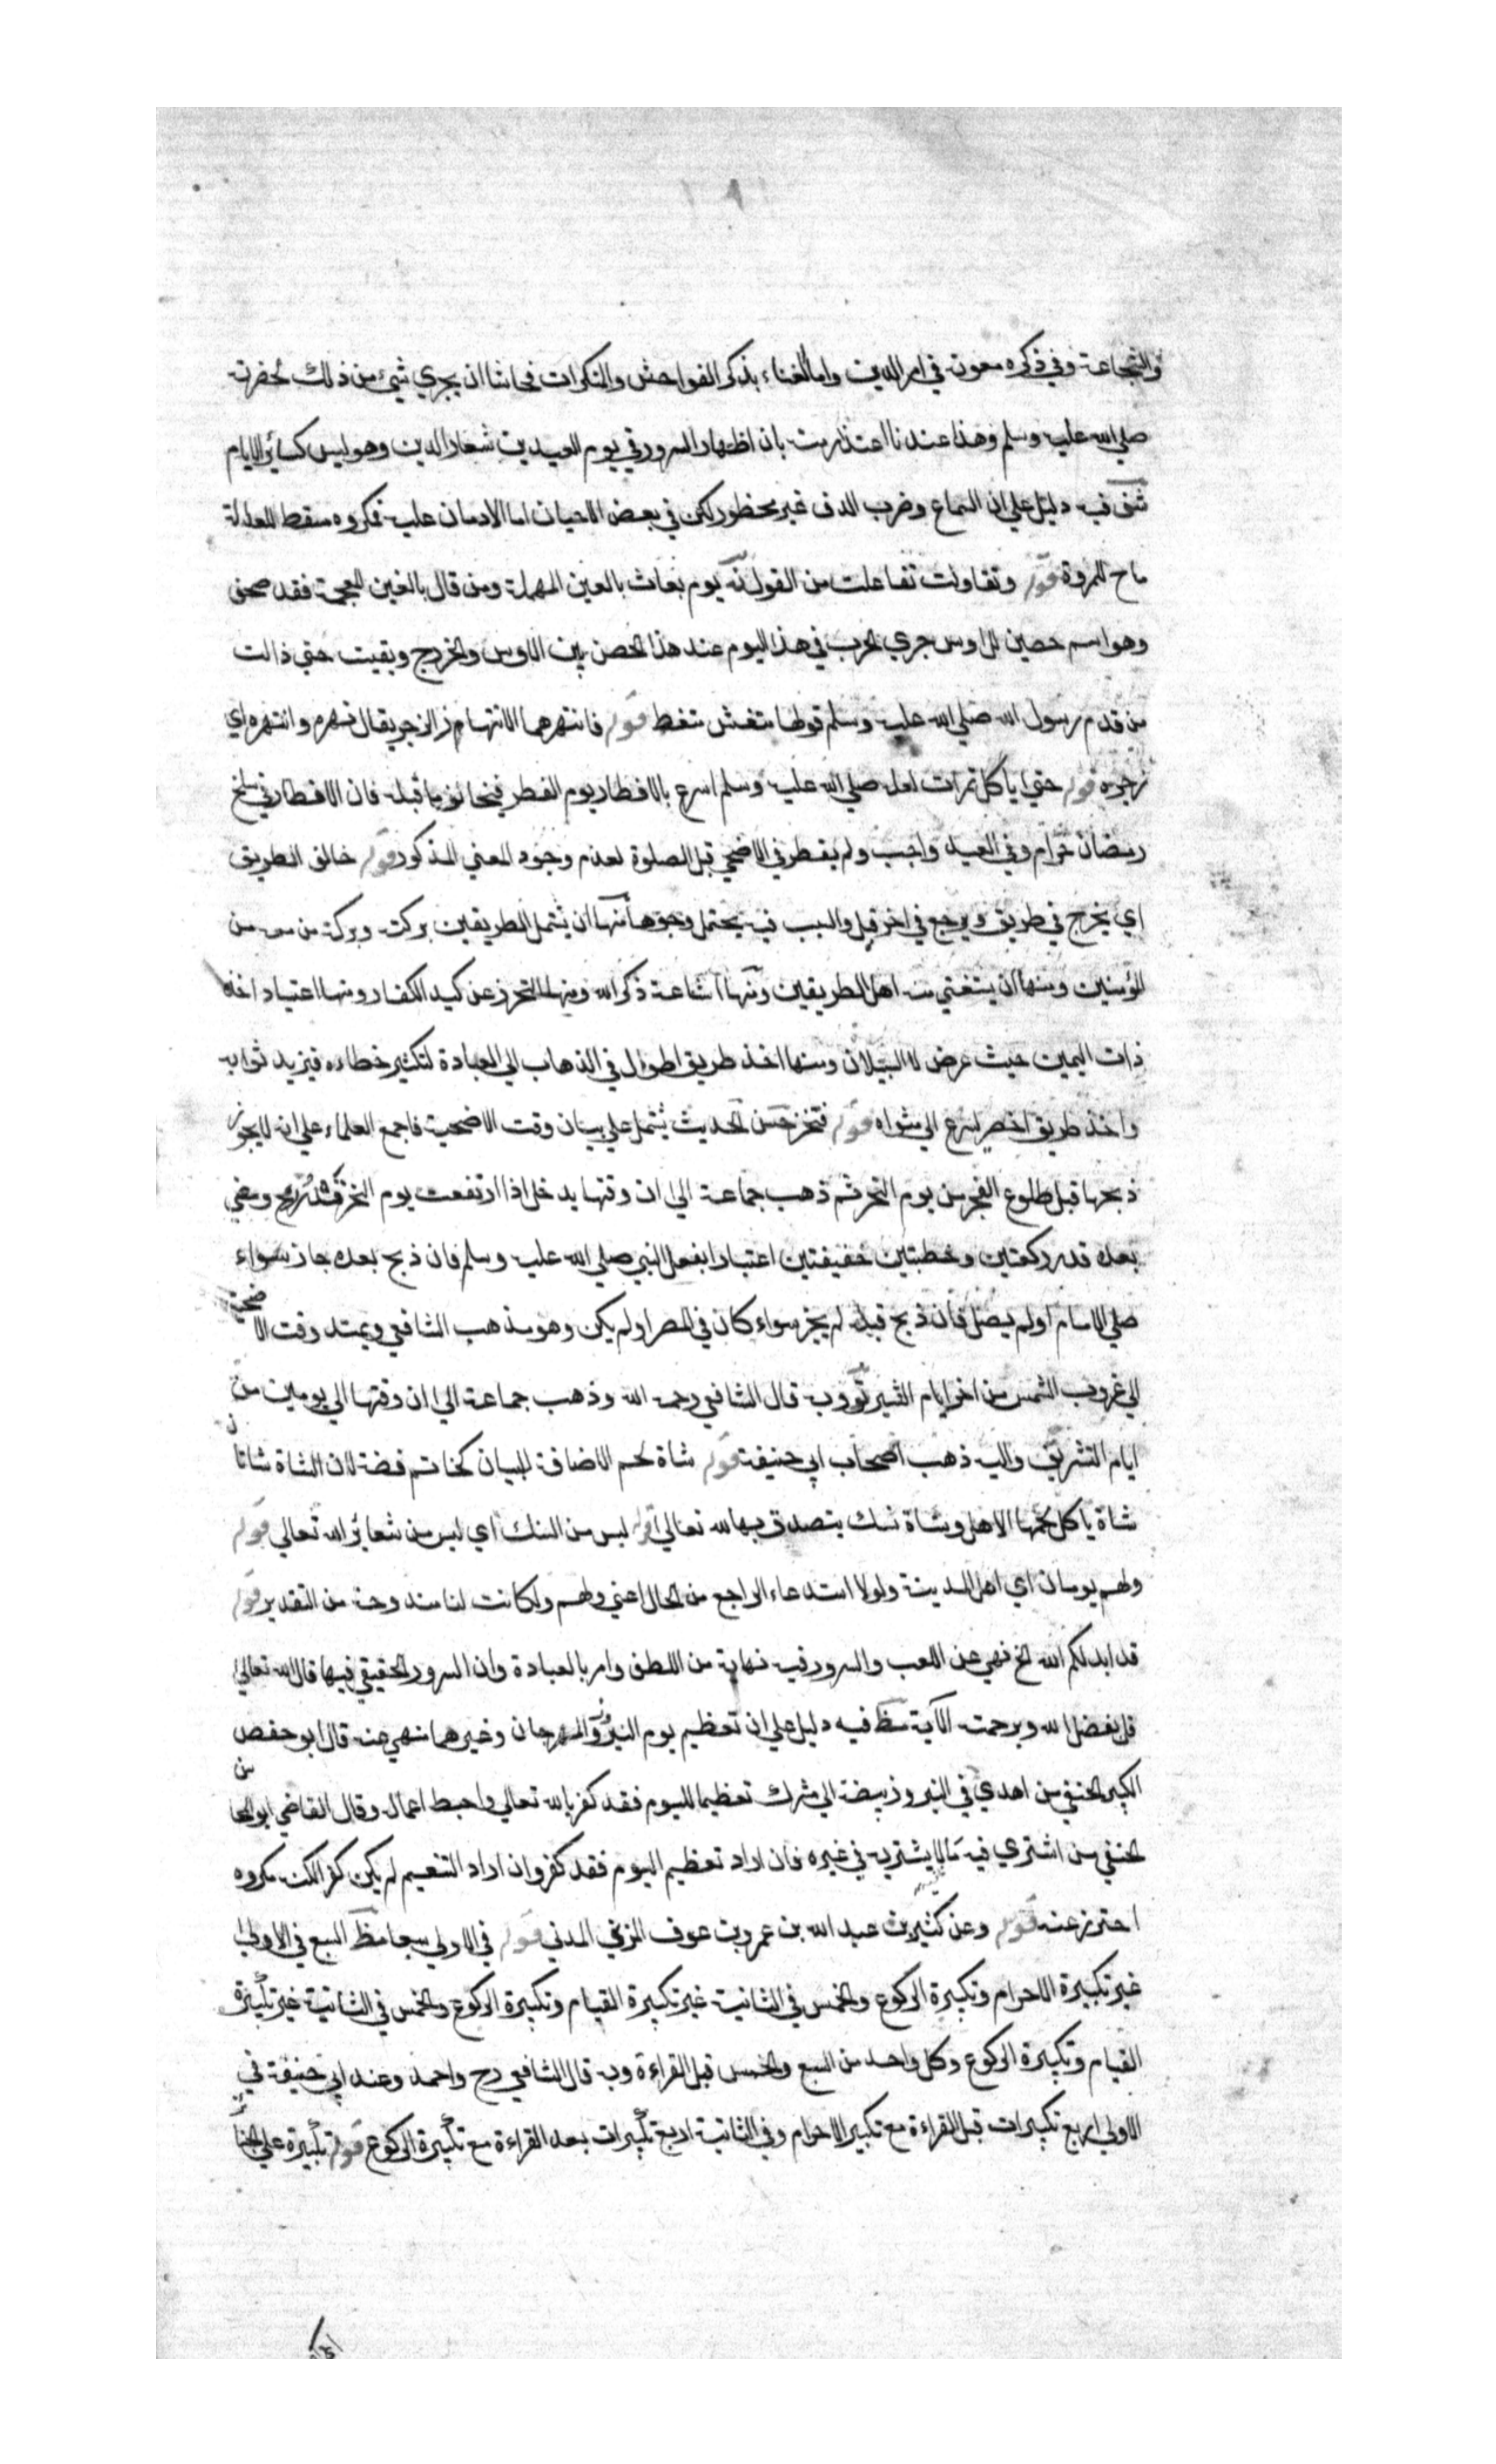 والشجاعة وفي ذكره معونة في امر الدين واما الغناء بذكر الفواحش والمنكرات فحاشا ان يجري شيء من ذلك بحضرته
صلى الله عليه وسلم وهذا عندنا اعتذار منه بان اظهار السرور في يوم العيدين شعار الدين وهو ليس كسائر الايام
فيه دليل على ان السماع وضرب الدف غير محظور لكن في بعض الاحيان اما الادمان عليه فمكروه مسقط للعدالة
ماح للمروة قوله وتقاولت تفاعلت من القول يوم بعاث بالعين المهملة ومن قال بالغين المعجمة فقد صحف
وهو اسم حصين للاوس جري الحرب في هذا اليوم عند هذا الحصن بين الاوس والخزرج وبقيت حتى زالت
من قدم رسول الله صلى الله عليه وسلم قولها متغش متغط قوله فانتهرهما الانتهار الزجر يقال نهره وانتهره اي
زجره قوله حتى ياكل تمرات لعله صلى الله عليه وسلم اسرع بالافطار يوم الفطر فيخالف ما قبله فان الافطار في سلخ
رمضان حرام وفي العيد واجب ولم يفطر في الاضحى قبل الصلوة لعدم وجود المعنى المذكور قوله خالف الطريق
اي يخرج في طريق ويرجع في اخر قيل والسبب فيه يحتمل وجوها منها ان يشمل الطريقين بركته وبركة من معه من
المؤمنين ومنها ان يستفتي منه اهل الطريقين ومنها اشاعة ذكر الله ومنها التحرز عن كيد الكفار ومنها اعتياد اخذه
ذات اليمين حيث عرض له السبيلان ومنها اخذ طريق اطول في الذهاب الى العبادة لتكثير خطاه فيزيد ثوابه
واخذ طريق اخصر ليسرع الى مثواه قوله الحديث يشتمل على بيان وقت الاضحية فاجمع العلماء على ان لا يجوز
ذبحها قبل طلوع الفجر من يوم النحر ثم ذهب جماعة الى ان وقتها يدخل اذا ارتفعت يوم النحر قدر رمح ومضى
بعده قدر ركعتين وخطبتين خفيفتين اعتبارا بفعل النبي صلى الله عليه وسلم فان ذبح بعده جاز سواء
صلى الامام او لم يصل فان ذبح قبله لم يجز سواء كان في المصر او لم يكن وهو مذهب الشافعي ويمتد وقت الاضحية
الى غروب الشمس من اخر ايام التشريق وبه قال الشافعي رحمه الله وذهب جماعة الى ان وقتها الى يومين من
ايام التشريق واليه ذهب اصحاب ابي حنيفة قوله شاة لحم الاضافة للبيان كخاتم فضة لان الشاة شاتان
شاة ياكل لحمها الاهل وشاة نسك يتصدق بها لله تعالى قوله ليس من النسك اي ليس من شعائر الله تعالى قوله
ولهم يومان اي اهل المدينة ولولا استدعاء الراجع من الحال اعني ولهم ولكانت لنا مندوحة من التقدير قوله
قد ابدلكم الله الخ نهي عن اللعب والسرور فيه نهاية من اللطف وامر بالعبادة وان السرور الحقيقي فيها قال الله تعالى
قل بفضل الله وبرحمته الآية فيه دليل على ان تعظيم يوم النيروز والمهرجان وغيرهما منهي عنه قال ابو حفص
الكبير الحنفي من اهدي في النيروز بيضة الى مشرك تعظيما لليوم فقد كفر بالله تعالى واحبط اعماله وقال القاضي ابو المحاسن
الحنفي من اشترى فيه مالا يشتريه في غيره فان اراد تعظيم اليوم فقد كفر وان اراد التنعيم لم يكن كفرا لكنه مكروه
احترز عنه قوله وعن كثير بن عبد الله بن عمرو بن عوف المزني المدني قوله في الاولى سبعا السبع في الاولى
غير تكبيرة الاحرام وتكبيرة الركوع والخمس في الثانية غير تكبيرة القيام وتكبيرة الركوع والخمس في الثانية غير تكبيرة
القيام وتكبيرة الركوع وكل واحد من السبع والخمس قبل القراءة وبه قال الشافعي رح واحمد وعند ابي حنيفة في
الاولى اربع تكبيرات قبل القراءة مع تكبير الاحرام وفي الثانية اربع تكبيرات بعد القراءة مع تكبيرة الركوع قوله تكبيرة على الجنائز